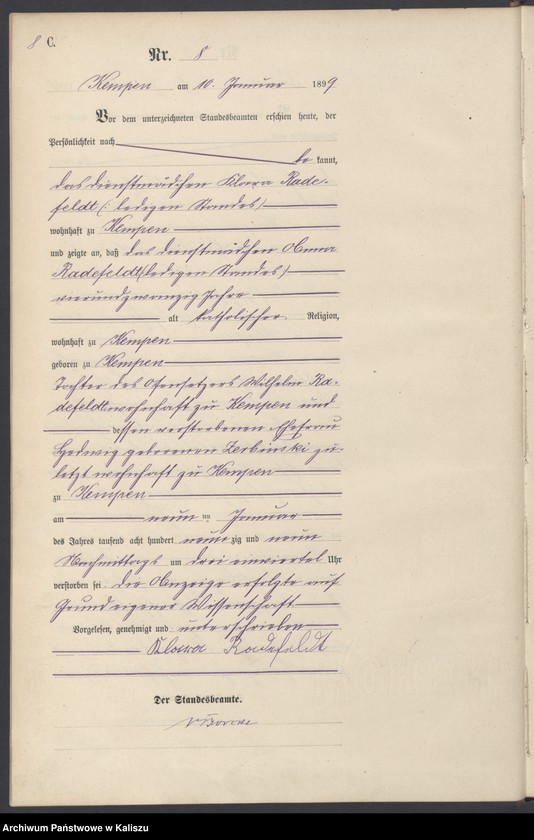 8 C.
Nr. 8
Kempen am 10. Januar 1899
Vor dem unterzeichneten Standesbeamten erschien heute, der
Persönlichkeit nach
be kannt,
das Dienstmädchen Klara Rade-
feldt (: ledigen Standes)
wohnhaft zu Kempen
und zeigte an, daß das Dienstmädchen Anna
Radefeldt (ledigen Standes)
vierundzwanzig Jahre
alt katholischer Religion,
wohnhaft zu Kempen
geboren zu Kempen
Tochter des Ofensetzers Wilhelm Ra-
defeldt wohnhaft zu Kempen und
dessen verstorbenen Ehefrau
Hedwig geborenen Zerbinski zu-
letzt wohnhaft zu Kempen
zu Kempen
am neun ten Januar
des Jahres tausend acht hundert neun zig und neun
Nachmittags um drei einviertel Uhr
verstorben sei. Die Anzeige erfolgte auf
Grund eigener Wissenschaft
Vorgelesen, genehmigt und unterschrieben
Klara Radefeldt
Der Standesbeamte.
Archiwum Państwowe w Kaliszu